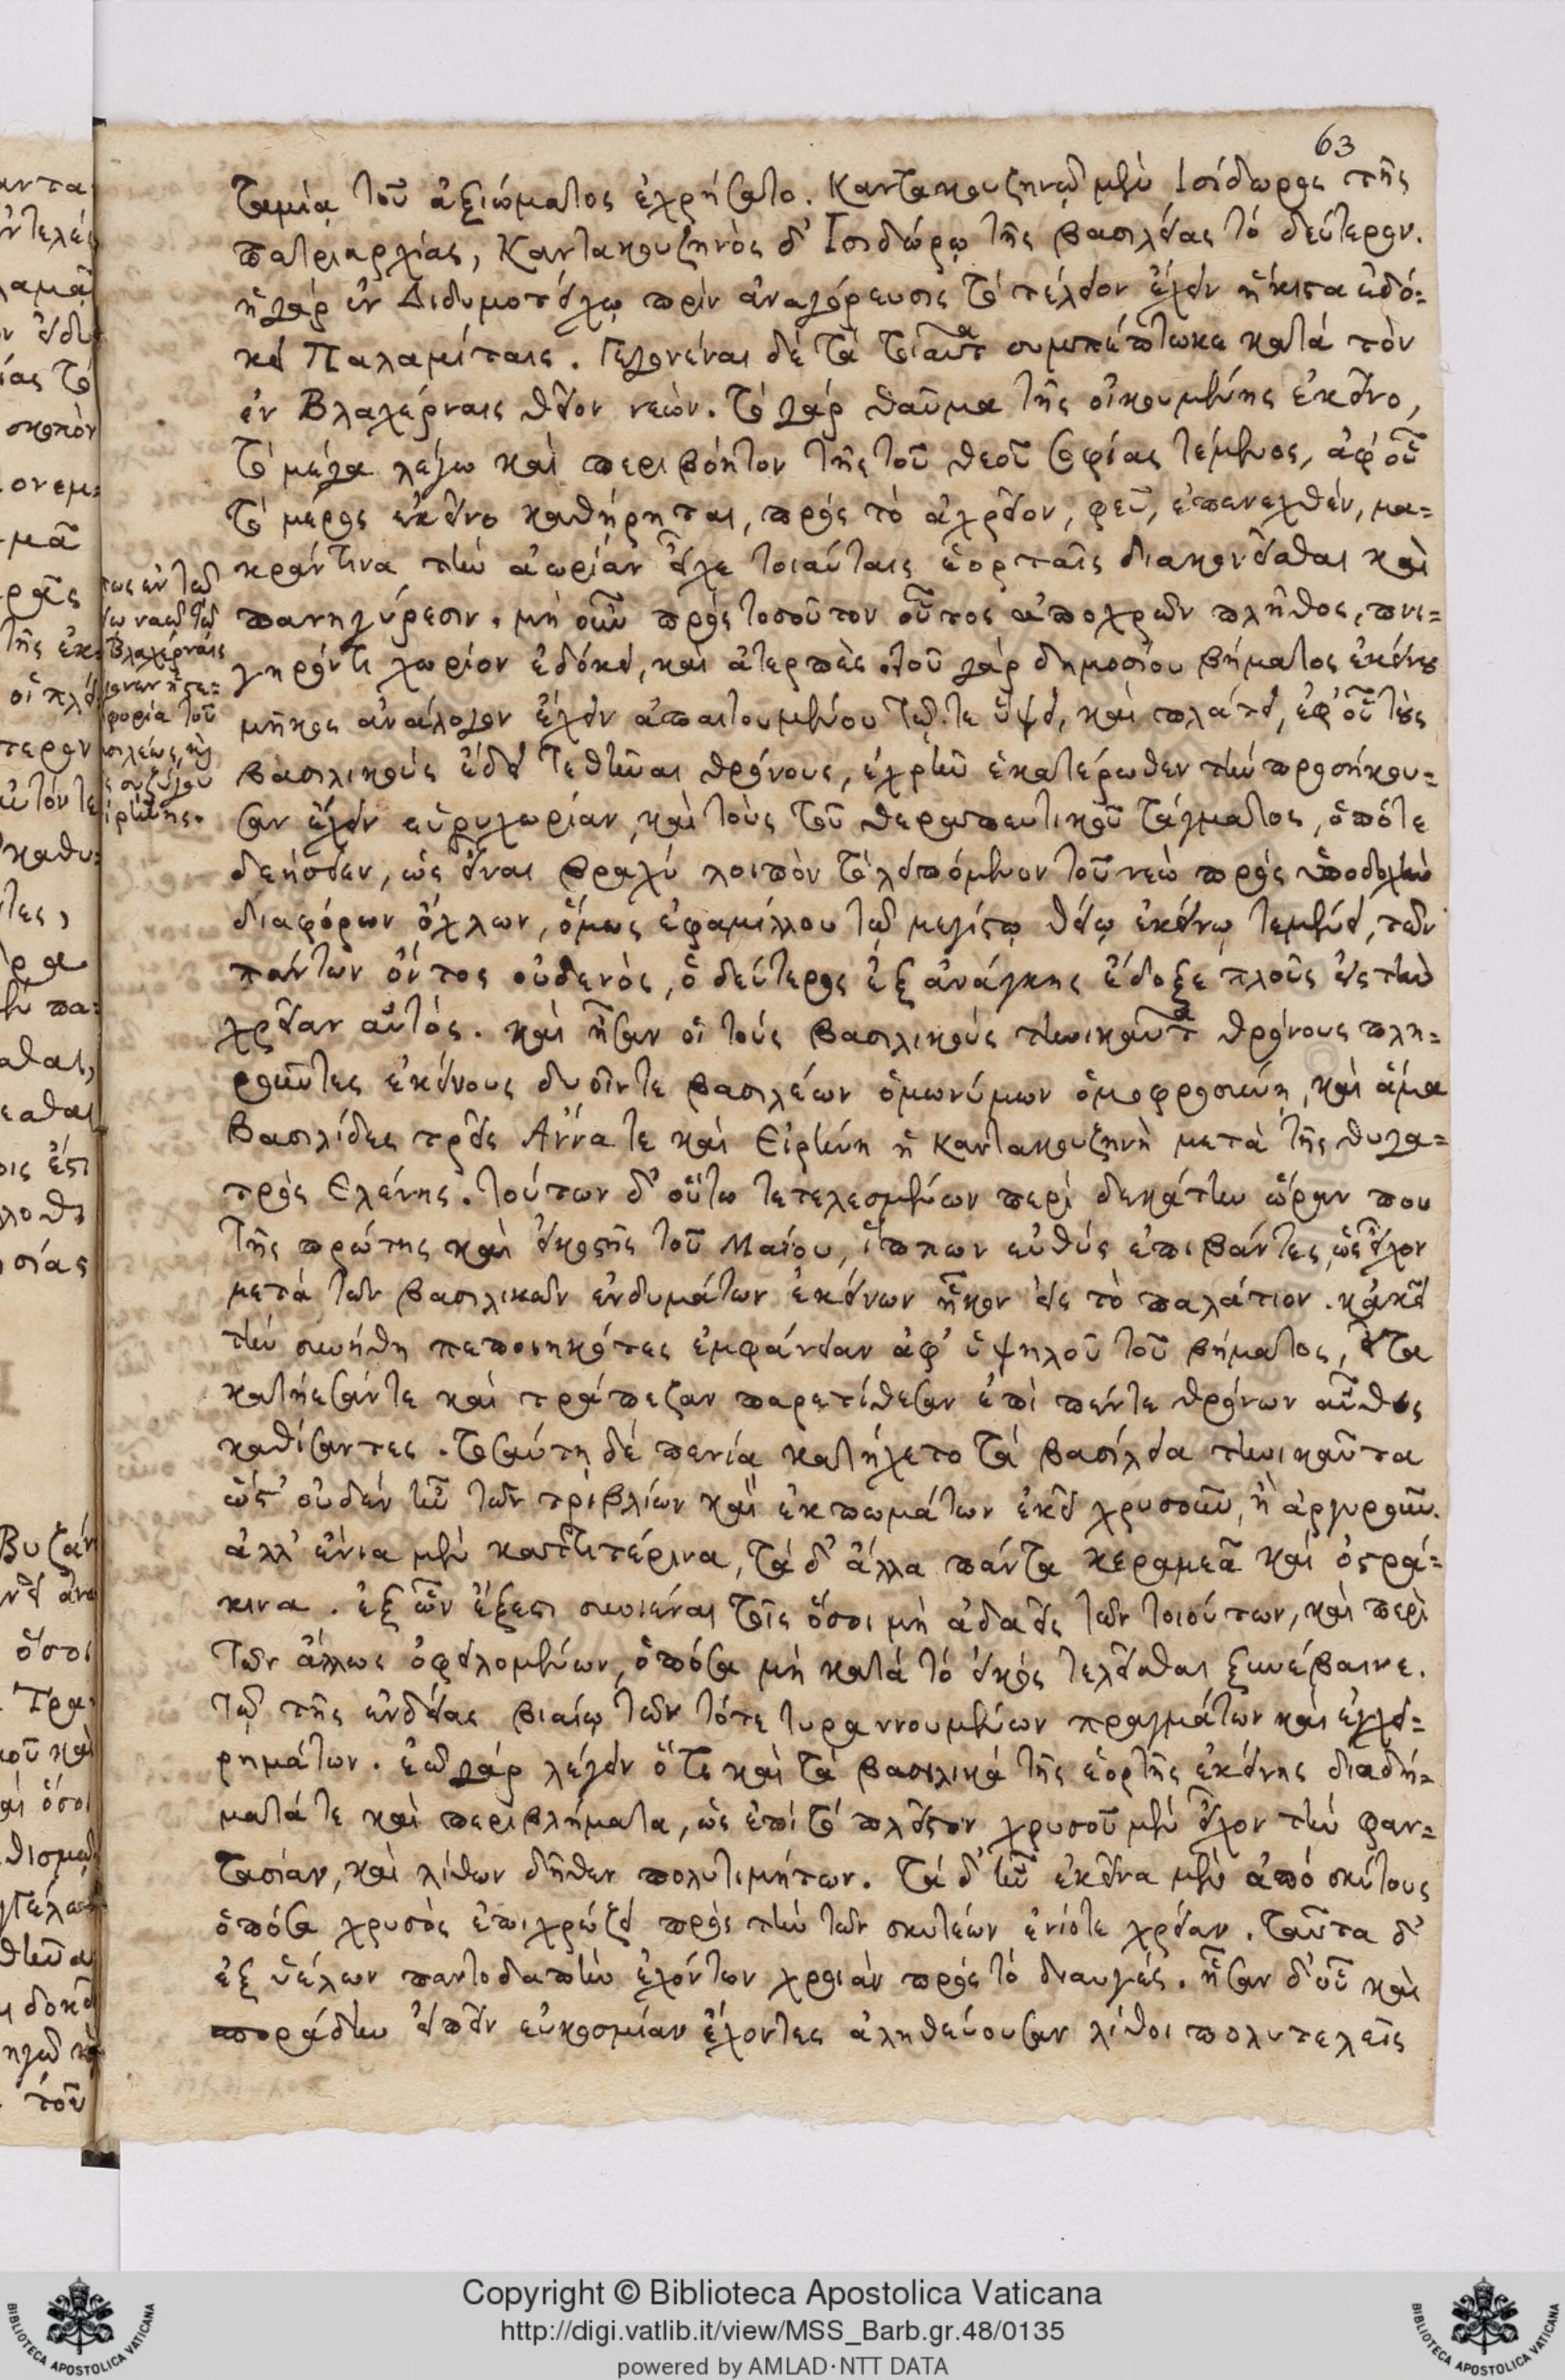 63
ταμίᾳ τοῦ ἀξιώματος ἐχρήσατο. Καντακουζηνῷ μὲν Ἰσίδωρος τῆς
πατριαρχίας, Καντακουζηνὸς δ' Ἰσιδώρῳ τῆς βασιλείας τὸ δεύτερον.
ἡ γὰρ ἐν Διδυμοτείχῳ πρὶν ἀναγόρευσις τὸ τέλειον ἔχειν ἥκιστα ἐδό=
κει Παλαμίταις. Γεγονέναι δὲ τὰ τοιαῦτα συμπέπτωκε κατὰ τὸν
ἐν Βλαχέρναις θεῖον νεών. τὸ γὰρ θαῦμα τῆς οἰκουμένης ἐκεῖνο,
τὸ μέγα λέγω καὶ περιβόητον τῆς τοῦ θεοῦ σοφίας τέμενος, ἀφ' οὗ
τὸ μέρος ἐκεῖνο καθήρηται, πρὸς τὸ ἀχρεῖον, φεῦ, ἐπανελθὲν, μα=
κρὰν τινα τὴν ἀωρίαν εἶχε τοιαύταις ἑορταῖς διακονεῖσθαι καὶ
πανηγύρεσιν. μὴ οὖν πρὸς τοσοῦτον οὗτος ἀποχρῶν πλῆθος, πνι=
γηρόν τι χωρίον ἐδόκει, καὶ ἀτερπές. τοῦ γὰρ δημοσίου βήματος ἐκείνου
μῆκος ἀνάλογον ἔχειν ἀπαιτουμένου τῷ τε ὕψει, καὶ πλάτει, ἐφ' οὗ τοὺς
βασιλικοὺς ἔδει τεθῆναι θρόνους, ἐχρῆν ἑκατέρωθεν τὴν προσήκου=
σαν ἔχειν εὐρυχωρίαν, καὶ τοὺς τοῦ θεραπευτικοῦ τάγματος, ὁπότε
δεήσειεν, ὡς εἶναι βραχὺ λοιπὸν τὸ λειπόμενον τοῦ νεὼ πρὸς ὑποδοχὴν
διαφόρων ὄχλων, ὅμως ἐφαμίλλου τῷ μεγίστῳ θείῳ ἐκείνῳ τεμένει, τῶν
πάντων ὄντος οὐδενὸς, ὁ δεύτερος ἐξ ἀνάγκης ἔδοξε πλοῦς εἰς τὴν
χρείαν αὐτός. καὶ ἦσαν οἱ τοὺς βασιλικοὺς τηνικαῦτα θρόνους πλη=
ροῦντες ἐκείνους δυοῖν τε βασιλέων ὁμωνύμων ὁμοφροσύνη, καὶ ἅμα
Βασιλίδες τρεῖς Ἄννα τε καὶ Εἰρήνη ἡ Καντακουζηνὴ μετὰ τῆς θυγα=
τρὸς Ἑλένης. τούτων δ' οὕτω τετελεσμένων περὶ δεκάτην ὥραν που
τῆς πρώτης καὶ εἰκοστῆς τοῦ Μαΐου, ἵππων εὐθὺς ἐπιβάντες, ὡς εἶχον
μετὰ τῶν βασιλικῶν ἐνδυμάτων ἐκείνων ἧκον εἰς τὸ παλάτιον. κἀκεῖ
τὴν συνήθη πεποιηκότες ἐμφάνειαν ἀφ' ὑψηλοῦ τοῦ βήματος, εἶτα
κατῄεσάν τε καὶ τράπεζαν παρετίθεσαν ἐπὶ πέντε θρόνων αὖθις
καθίσαντες. Τοσαύτη δὲ πενία κατήχετο τὰ βασίλεια τηνικαῦτα
ὥστ' οὐδὲν ἦν τῶν τρυβλίων καὶ ἐκπωμάτων ἐκεῖ χρυσοῦν, ἢ ἀργυροῦν.
ἀλλ' ἔνια μὲν καττιτέρινα, τὰ δ' ἄλλα πάντα κεραμεᾶ καὶ ὀστρά=
κινα. ἐξ ὧν ἔξεστι συνιέναι τοῖς ὅσοι μὴ ἀδαεῖς τῶν τοιούτων, καὶ περὶ
τῶν ἄλλως ὀφειλομένων, ὁπόσα μὴ κατὰ τὸ εἰκὸς τελεῖσθαι ξυνέβαινε.
τῷ τῆς ἐνδείας βιαίῳ τῶν τότε τυραννουμένων πραγμάτων καὶ ἐγχει=
ρημάτων. ἐῶ γὰρ λέγειν ὅτι καὶ τὰ βασιλικὰ τῆς ἑορτῆς ἐκείνης διαδή=
ματά τε καὶ περιβλήματα, ὡς ἐπὶ τὸ πλεῖστον χρυσοῦ μὲν εἶχον τὴν φαν=
τασίαν, καὶ λίθων δῆθεν πολυτιμήτων. τὰ δ' ἦν ἐκεῖνα μὲν ἀπὸ σκύτους
ὁπόσα χρυσὸς ἐπιχρώζει πρὸς τὴν τῶν σκυτέων ἐνίοτε χρείαν. ταῦτα δ'
ἐξ ὑέλων παντοδαπὴν ἐχόντων χροιὰν πρὸς τὸ διαυγές. ἦσαν δ' οὗ καὶ
σποράδην εἰπεῖν εὐκοσμίαν ἔχοντες ἀληθεύουσαν λίθοι πολυτελεῖς
Copyright © Biblioteca Apostolica Vaticana
http://digi.vatlib.it/view/MSS_Barb.gr.48/0135
powered by AMLAD·NTT DATA
BIBLIOTECA APOSTOLICA VATICANA
BIBLIOTECA APOSTOLICA VATICANA